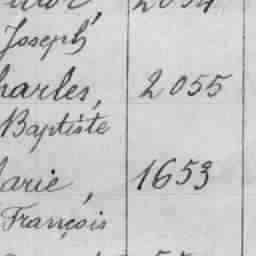 Joseph
harles, 2055
Baptiste
arie, 1653
François